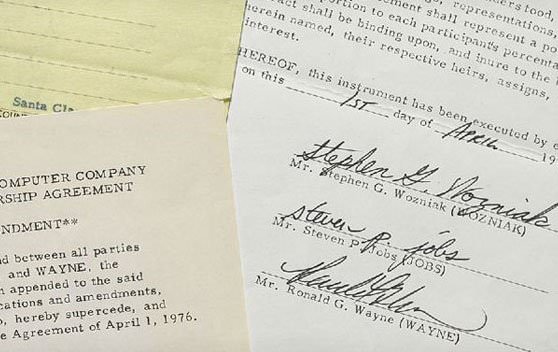 Santa Cla
OMPUTER COMPANY
RSHIP AGREEMENT
NDMENT**
d between all parties
and WAYNE, the
n appended to the said
cations and amendments,
o, hereby supercede, and
e Agreement of April 1, 1976.
representations,
ement shall represent a po
portion to each participant's percenta
ract shall be binding upon, and inure to the
herein named, their respective heirs, assigns,
interest.
HEREOF, this instrument has been executed by e
on this 1ST day of APRIL 19
Stephen G. Wozniak
Mr. Stephen G. Wozniak (WOZNIAK)
steven p. jobs
Mr. Steven P. Jobs (JOBS)
Mr. Ronald G. Wayne (WAYNE)